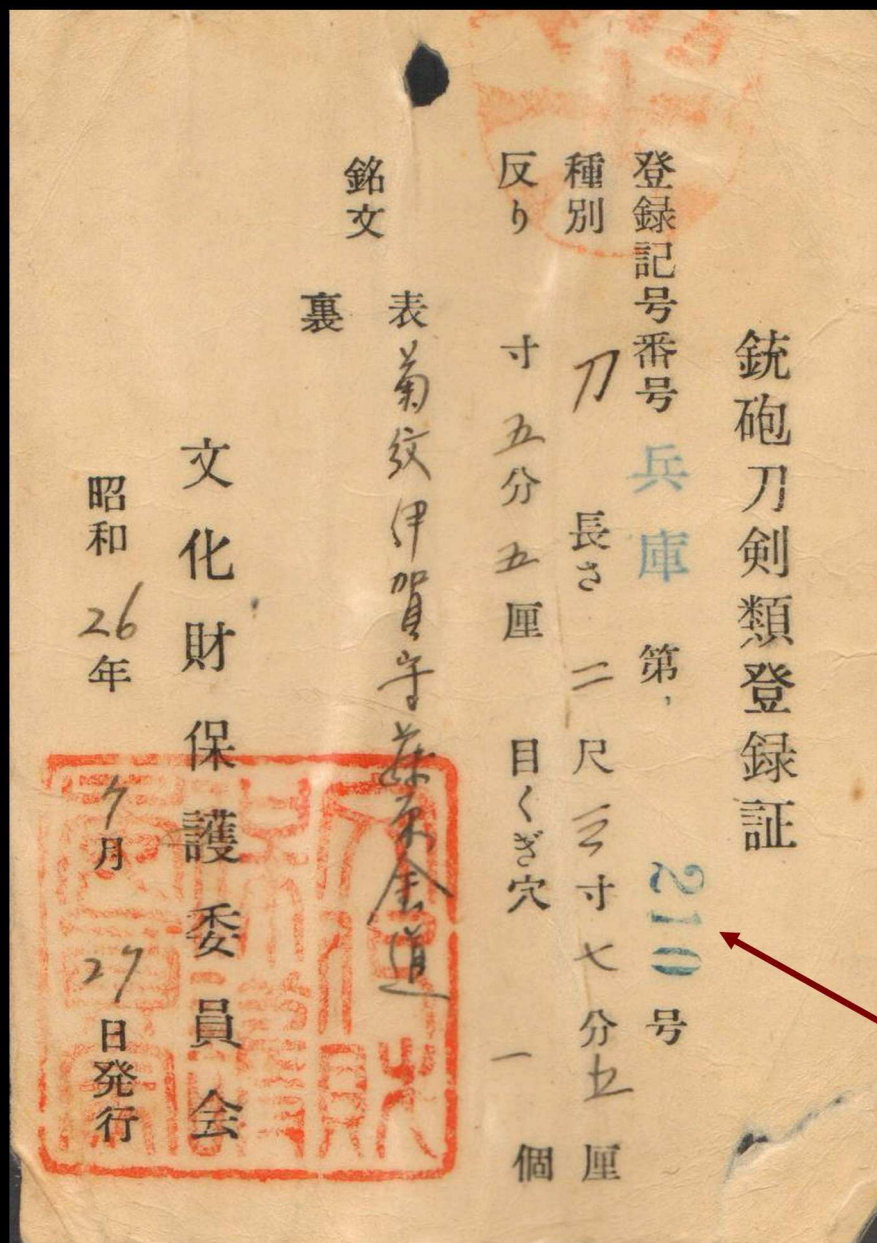 銃砲刀剣類登録証
登録記号番号 兵庫 第 210 号
種別 刀 長さ 二 尺 三 寸 七 分 五 厘
反り 寸 五 分 五 厘 目くぎ穴 一 個
銘文 表 菊紋伊賀守藤原金道
裏
文化財保護委員会
昭和 26 年 月 27 日発行